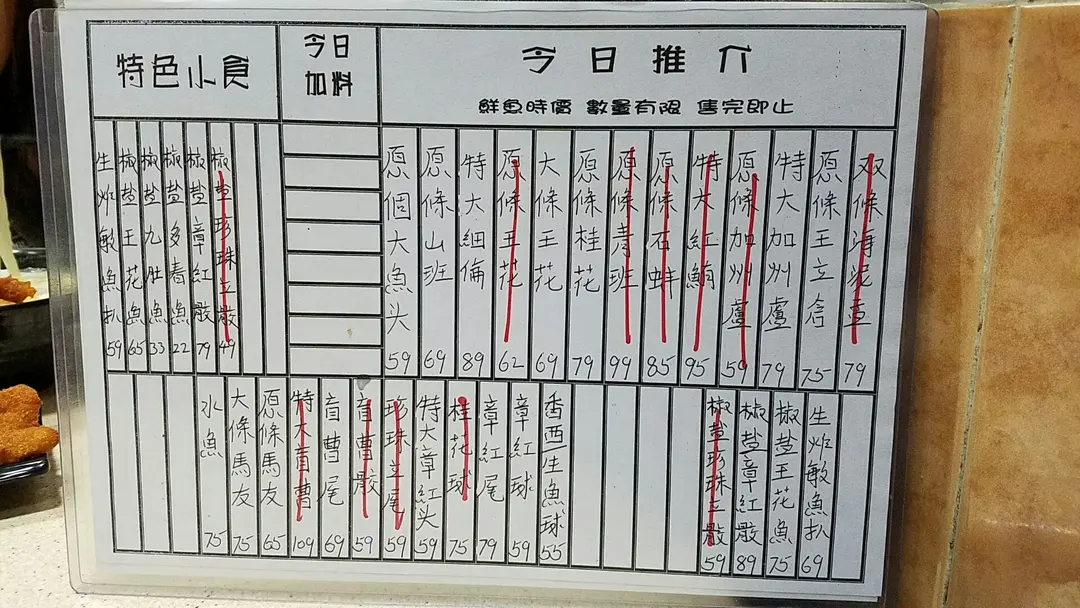 今日推介
鮮魚時價 數量有限 售完即止
双條海泥𩶘 79
原條王立倉 75
特大加州盧 79
原條加州盧 59
特大紅鮋 95
原條石蚌 85
原條青班 99
原條桂花 79
大條王花 69
原條王花 62
特大細倫 89
原條山班 69
原個大魚头 59
今日加料
特色小食
椒盐珍珠立散 49
椒盐章紅散 79
椒盐多春魚 22
椒盐九肚魚 33
椒盐王花魚 65
生炸敏魚扒 59
生炸敏魚扒 69
椒盐王花魚 75
椒盐章紅散 89
椒盐珍珠立散 59
香西生魚球 55
章紅球 59
章紅尾 79
桂花球 75
特大章紅头 59
珍珠立尾 59
盲曹散 59
盲曹尾 69
特大盲曹 109
原條馬友 65
大條馬友 75
水魚 75